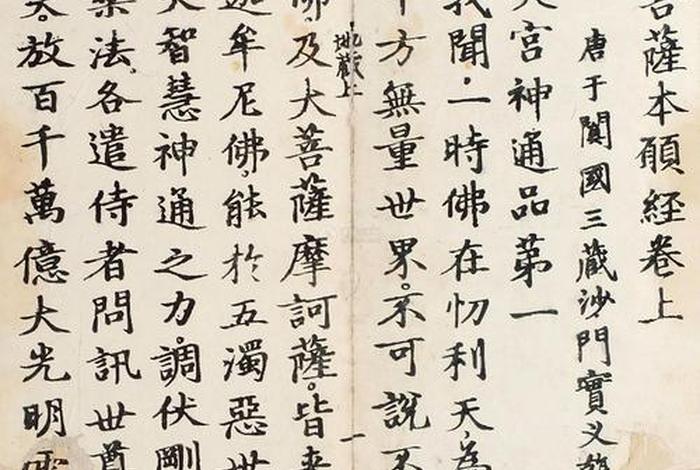 菩薩本願經卷上
唐于闐國三藏沙門實义
宮神通品第一
我聞。一時佛在忉利天。為
十方無量世界。不可說不
地藏上 一
佛。及大菩薩摩訶薩。皆來
迦牟尼佛。能於五濁惡世
大智慧神通之力。調伏剛
樂法。各遣侍者問訊世尊
笑。放百千萬億大光明雲